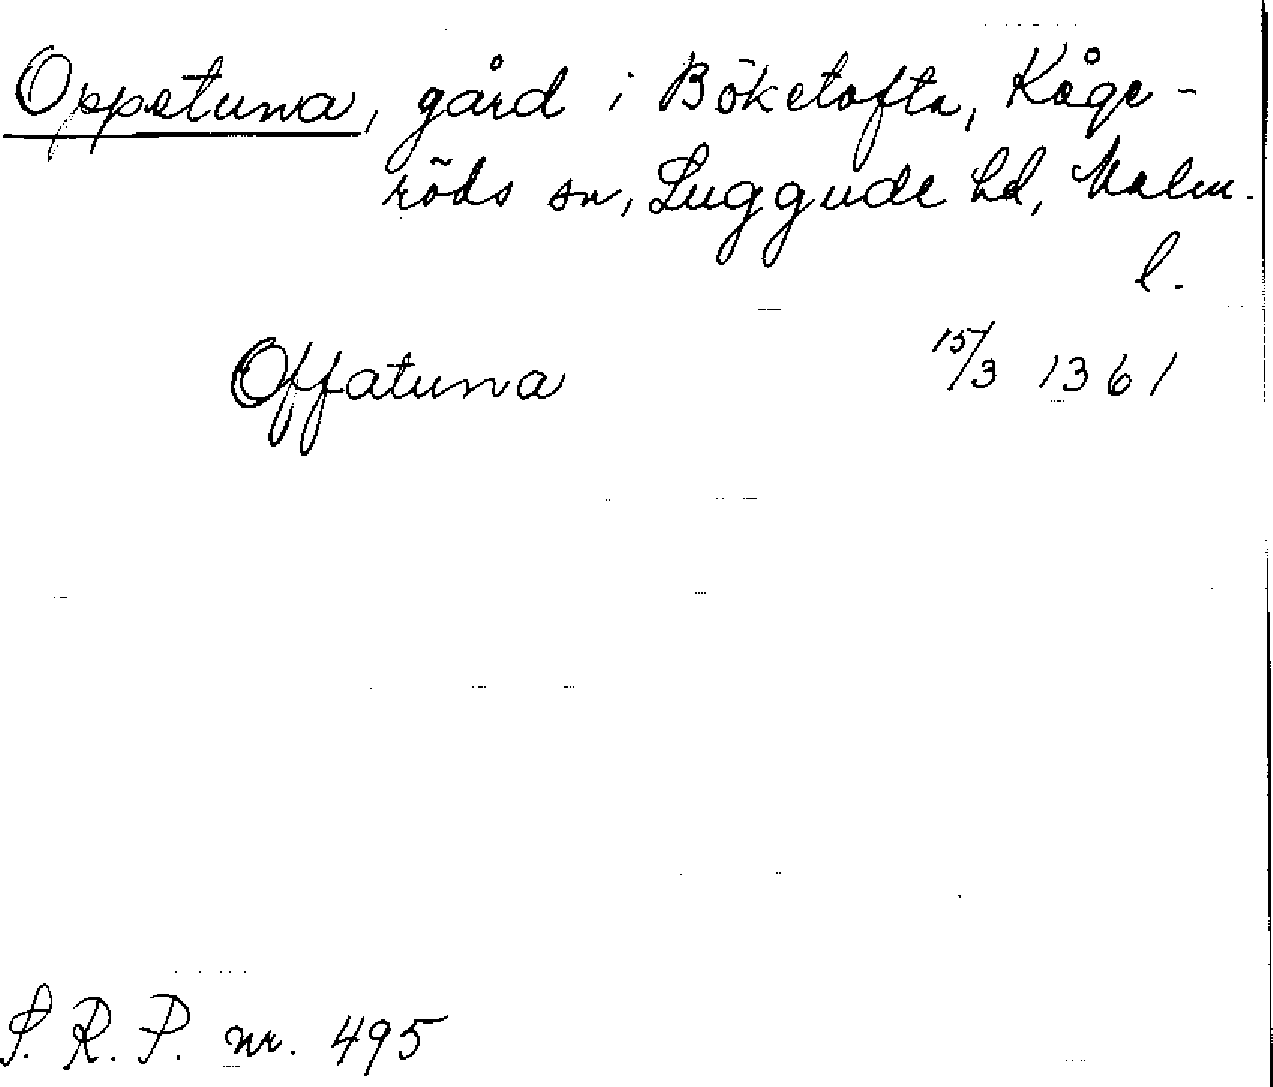 Oppetuna, gård i Böketofta, Kåge-
röds sn, Luggude hd, Malm.
l.
Offatuna 15/3 1361
S. R. P. nr. 495